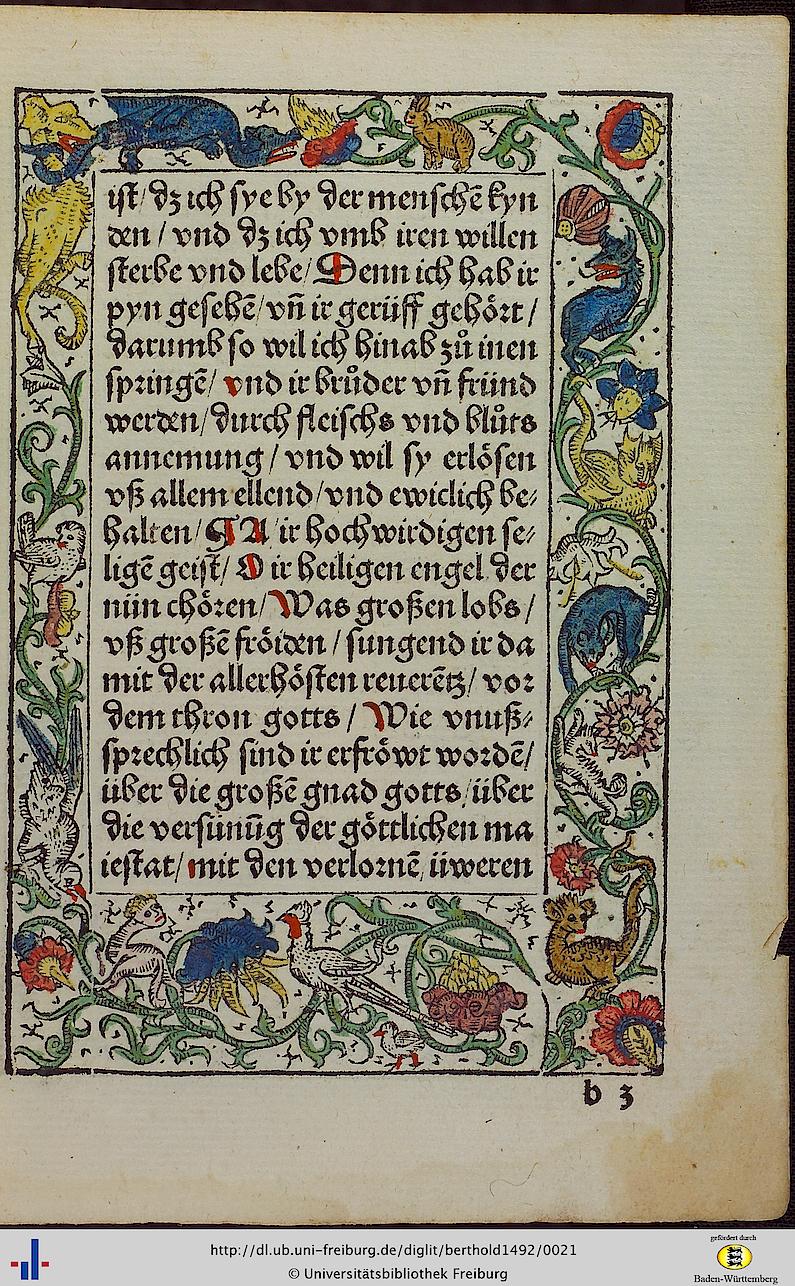 ist/ dz ich sye by der menschē kyn
den / vnd dz ich vmb iren willen
sterbe vnd lebe/ Denn ich hab ir
pyn gesehē/ vn̄ ir gerüff gehört /
darumb so wil ich hinab zů inen
springē/ vnd ir brůder vn̄ fründ
werden/ durch fleischs vnd blůts
annemung / vnd wil sy erlösen
vß allem ellend/ vnd ewiclich be⸗
halten/ ¶ A ir hochwirdigen se⸗
ligē geist/ O ir heiligen engel der
nün chören/ Was großen lobs /
vß großē fröiden / sungend ir da
mit der allerhösten reuerētz/ vor
dem thron gotts / Wie vnuß⸗
sprechlich sind ir erfröwt wordē/
über die großē gnad gotts/ über
die versünūg der göttlichen ma
iestat/ mit den verlornē/ üweren
b 3
http://dl.ub.uni-freiburg.de/diglit/berthold1492/0021
© Universitätsbibliothek Freiburg
gefördert durch
Baden-Württemberg